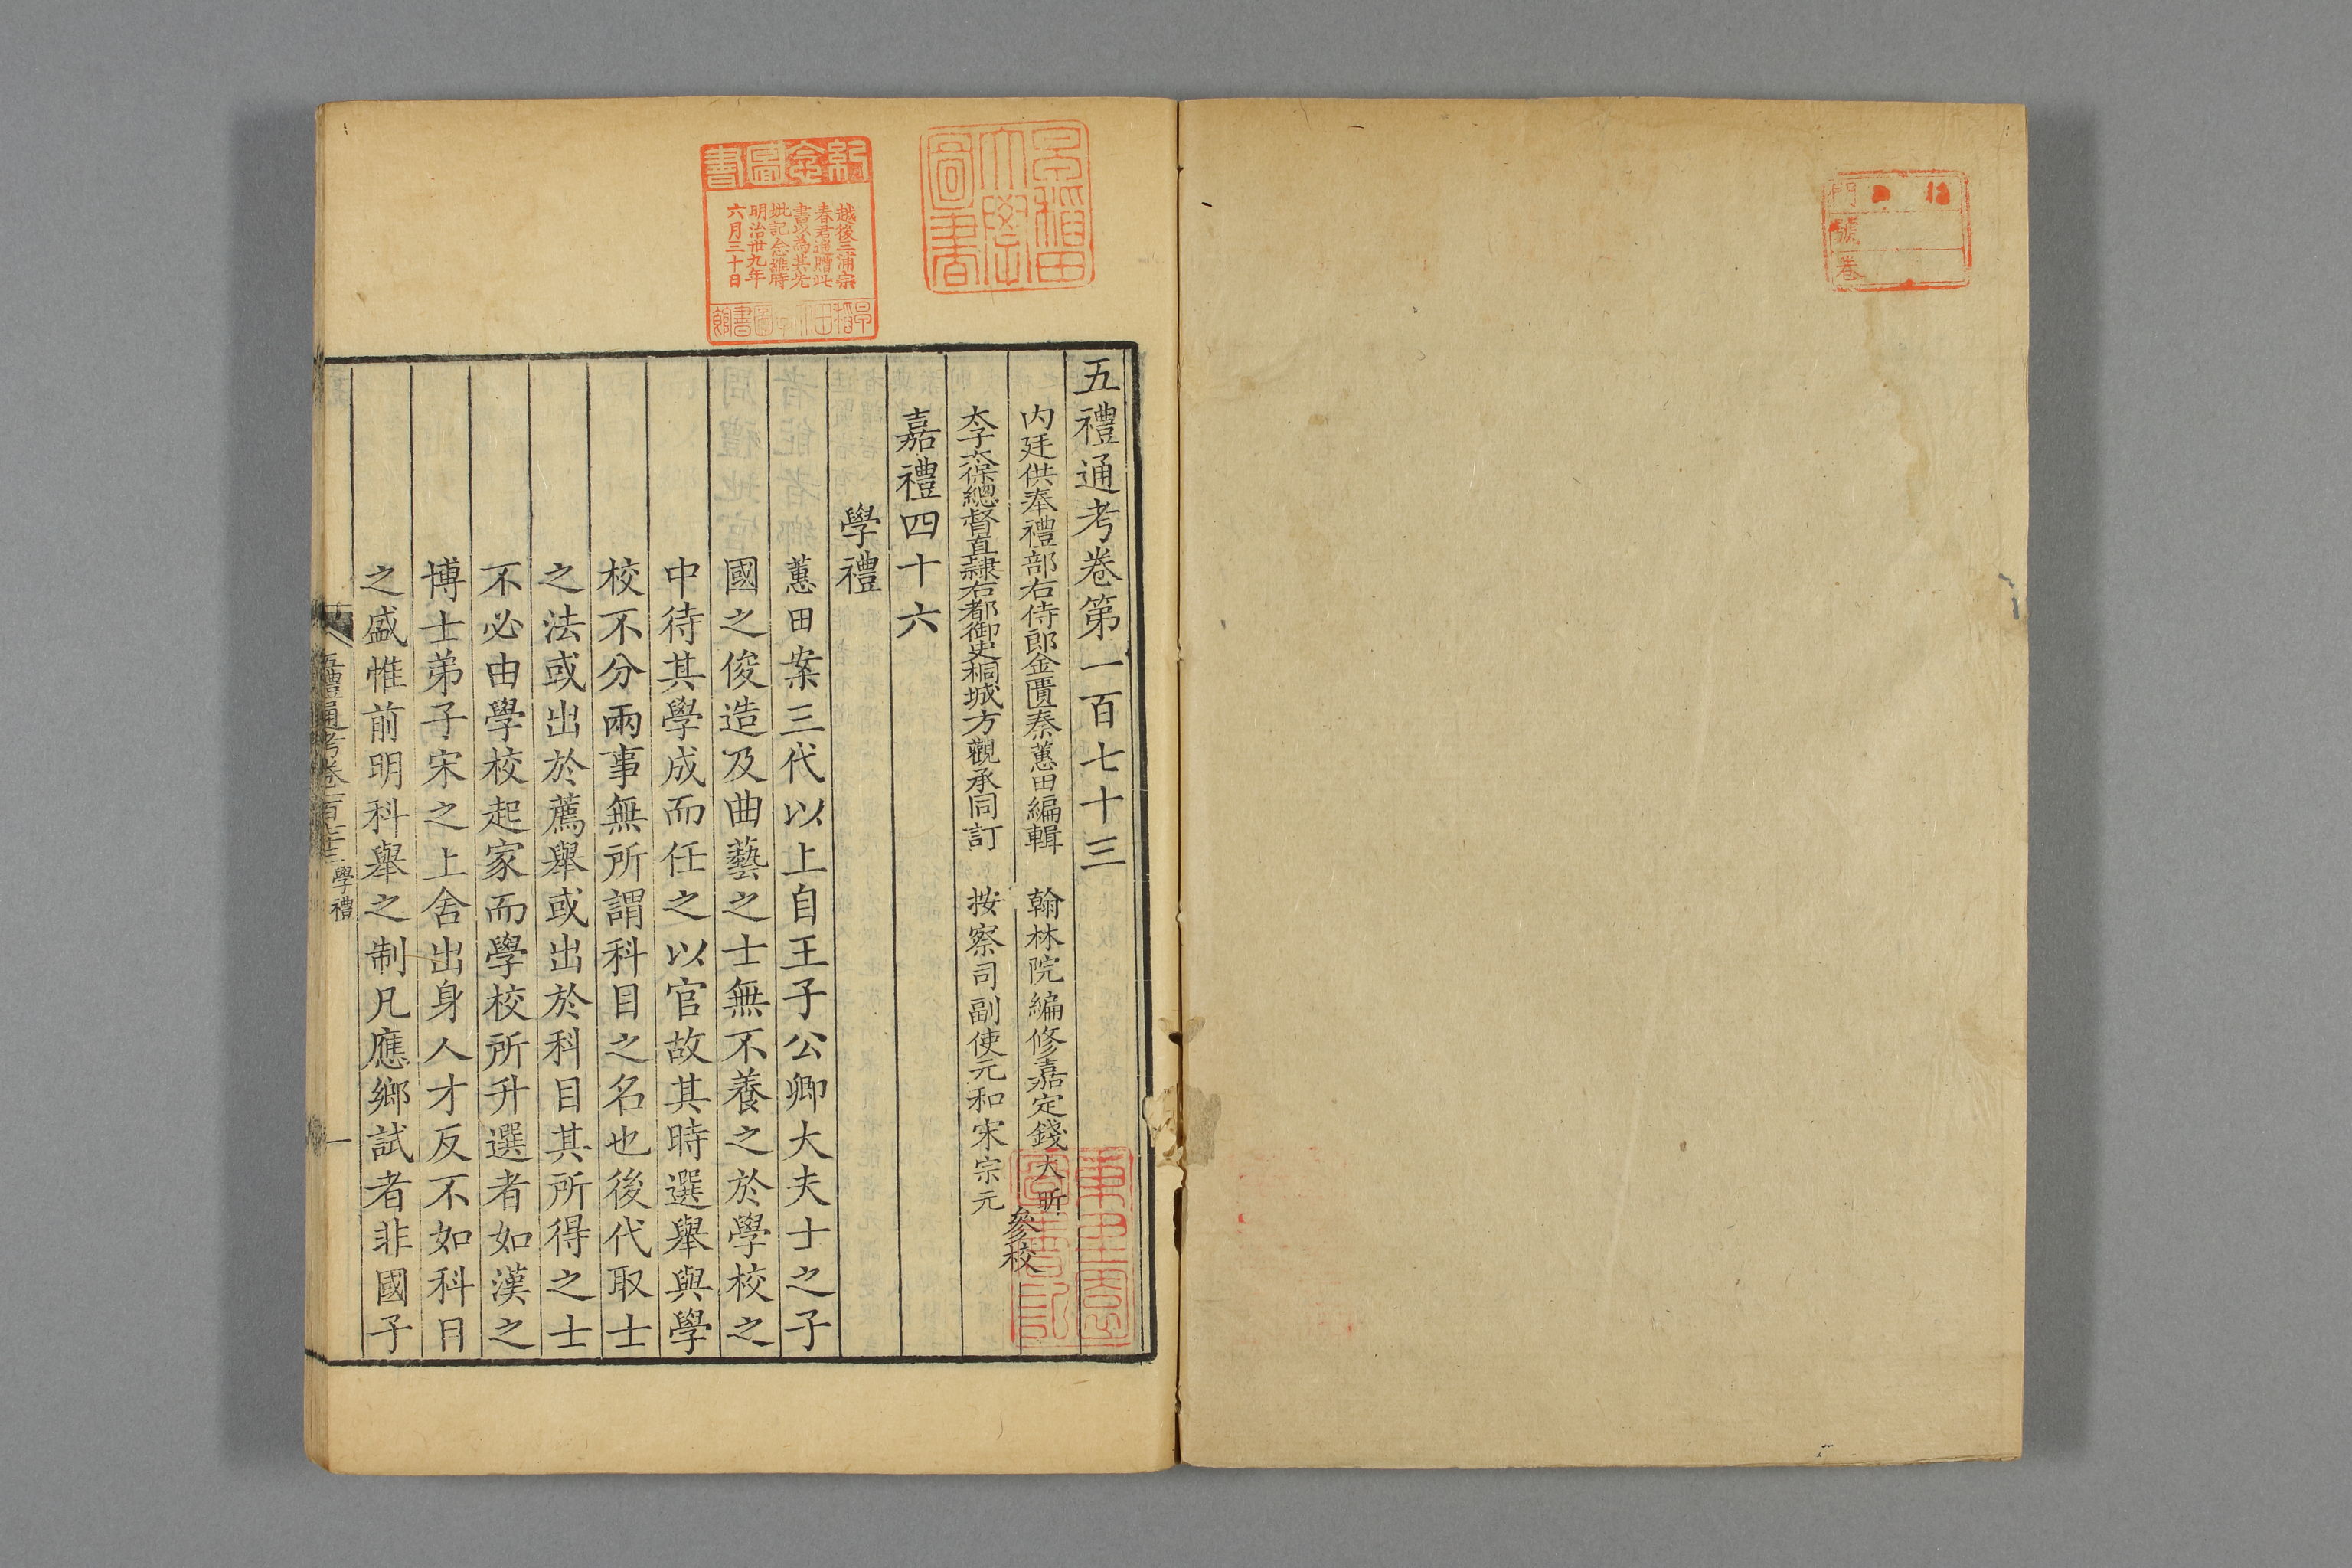 門
號
卷
早稲田大學圖書
紀念圖書
越後三浦宗
春君逓贈此
書以為其先
妣記念維時
明治卅九年
六月三十日
五禮通考卷第一百七十三
内廷供奉禮部右侍郎金匱秦蕙田編輯
翰林院編修嘉定錢大昕
太子太保總督直隷右都御史桐城方觀承同訂
按察司副使元和宋宗元
參校
嘉禮四十六
學禮
蕙田案三代以上自王子公卿大夫士之子
國之俊造及曲藝之士無不養之於學校之
中待其學成而任之以官故其時選舉與學
校不分兩事無所謂科目之名也後代取士
之法或出於薦舉或出於科目其所得之士
不必由學校起家而學校所升選者如漢之
博士弟子宋之上舍出身人才反不如科目
之盛惟前明科舉之制凡應鄉試者非國子
五禮通考卷一百七十三 學禮
一